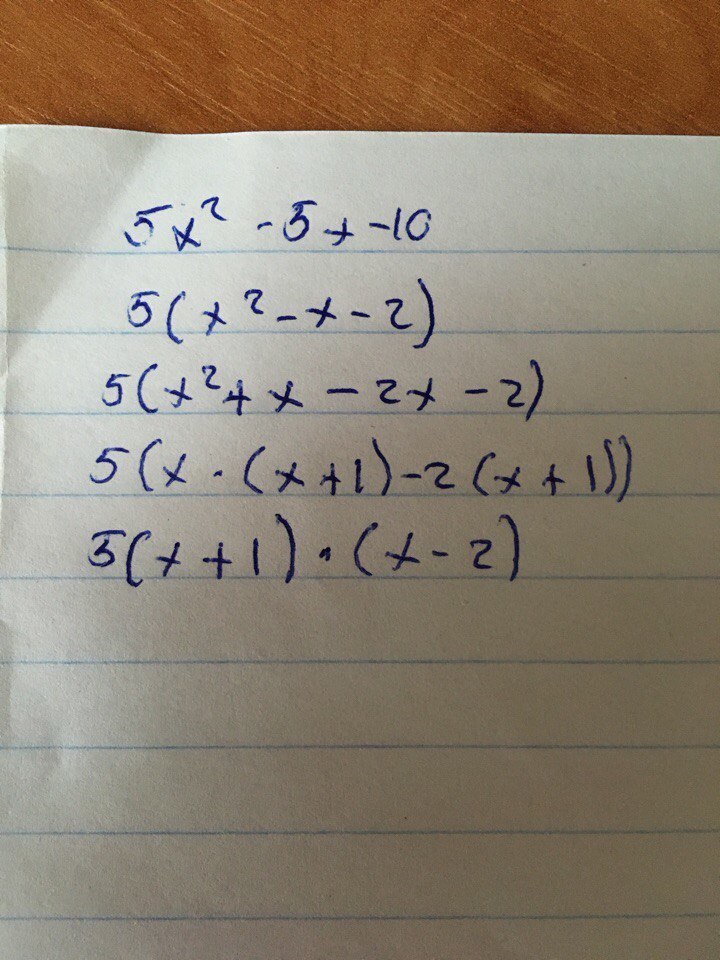 5x² - 5x - 10
5(x² - x - 2)
5(x² + x - 2x - 2)
5(x · (x + 1) - 2(x + 1))
5(x + 1) · (x - 2)